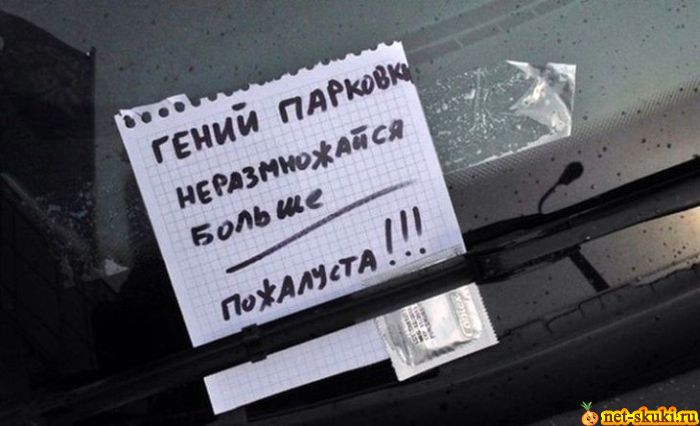 ГЕНИЙ ПАРКОВКИ
НЕРАЗМНОЖАЙСЯ
БОЛЬШЕ
ПОЖАЛУСТА!!!
net-skuki.ru